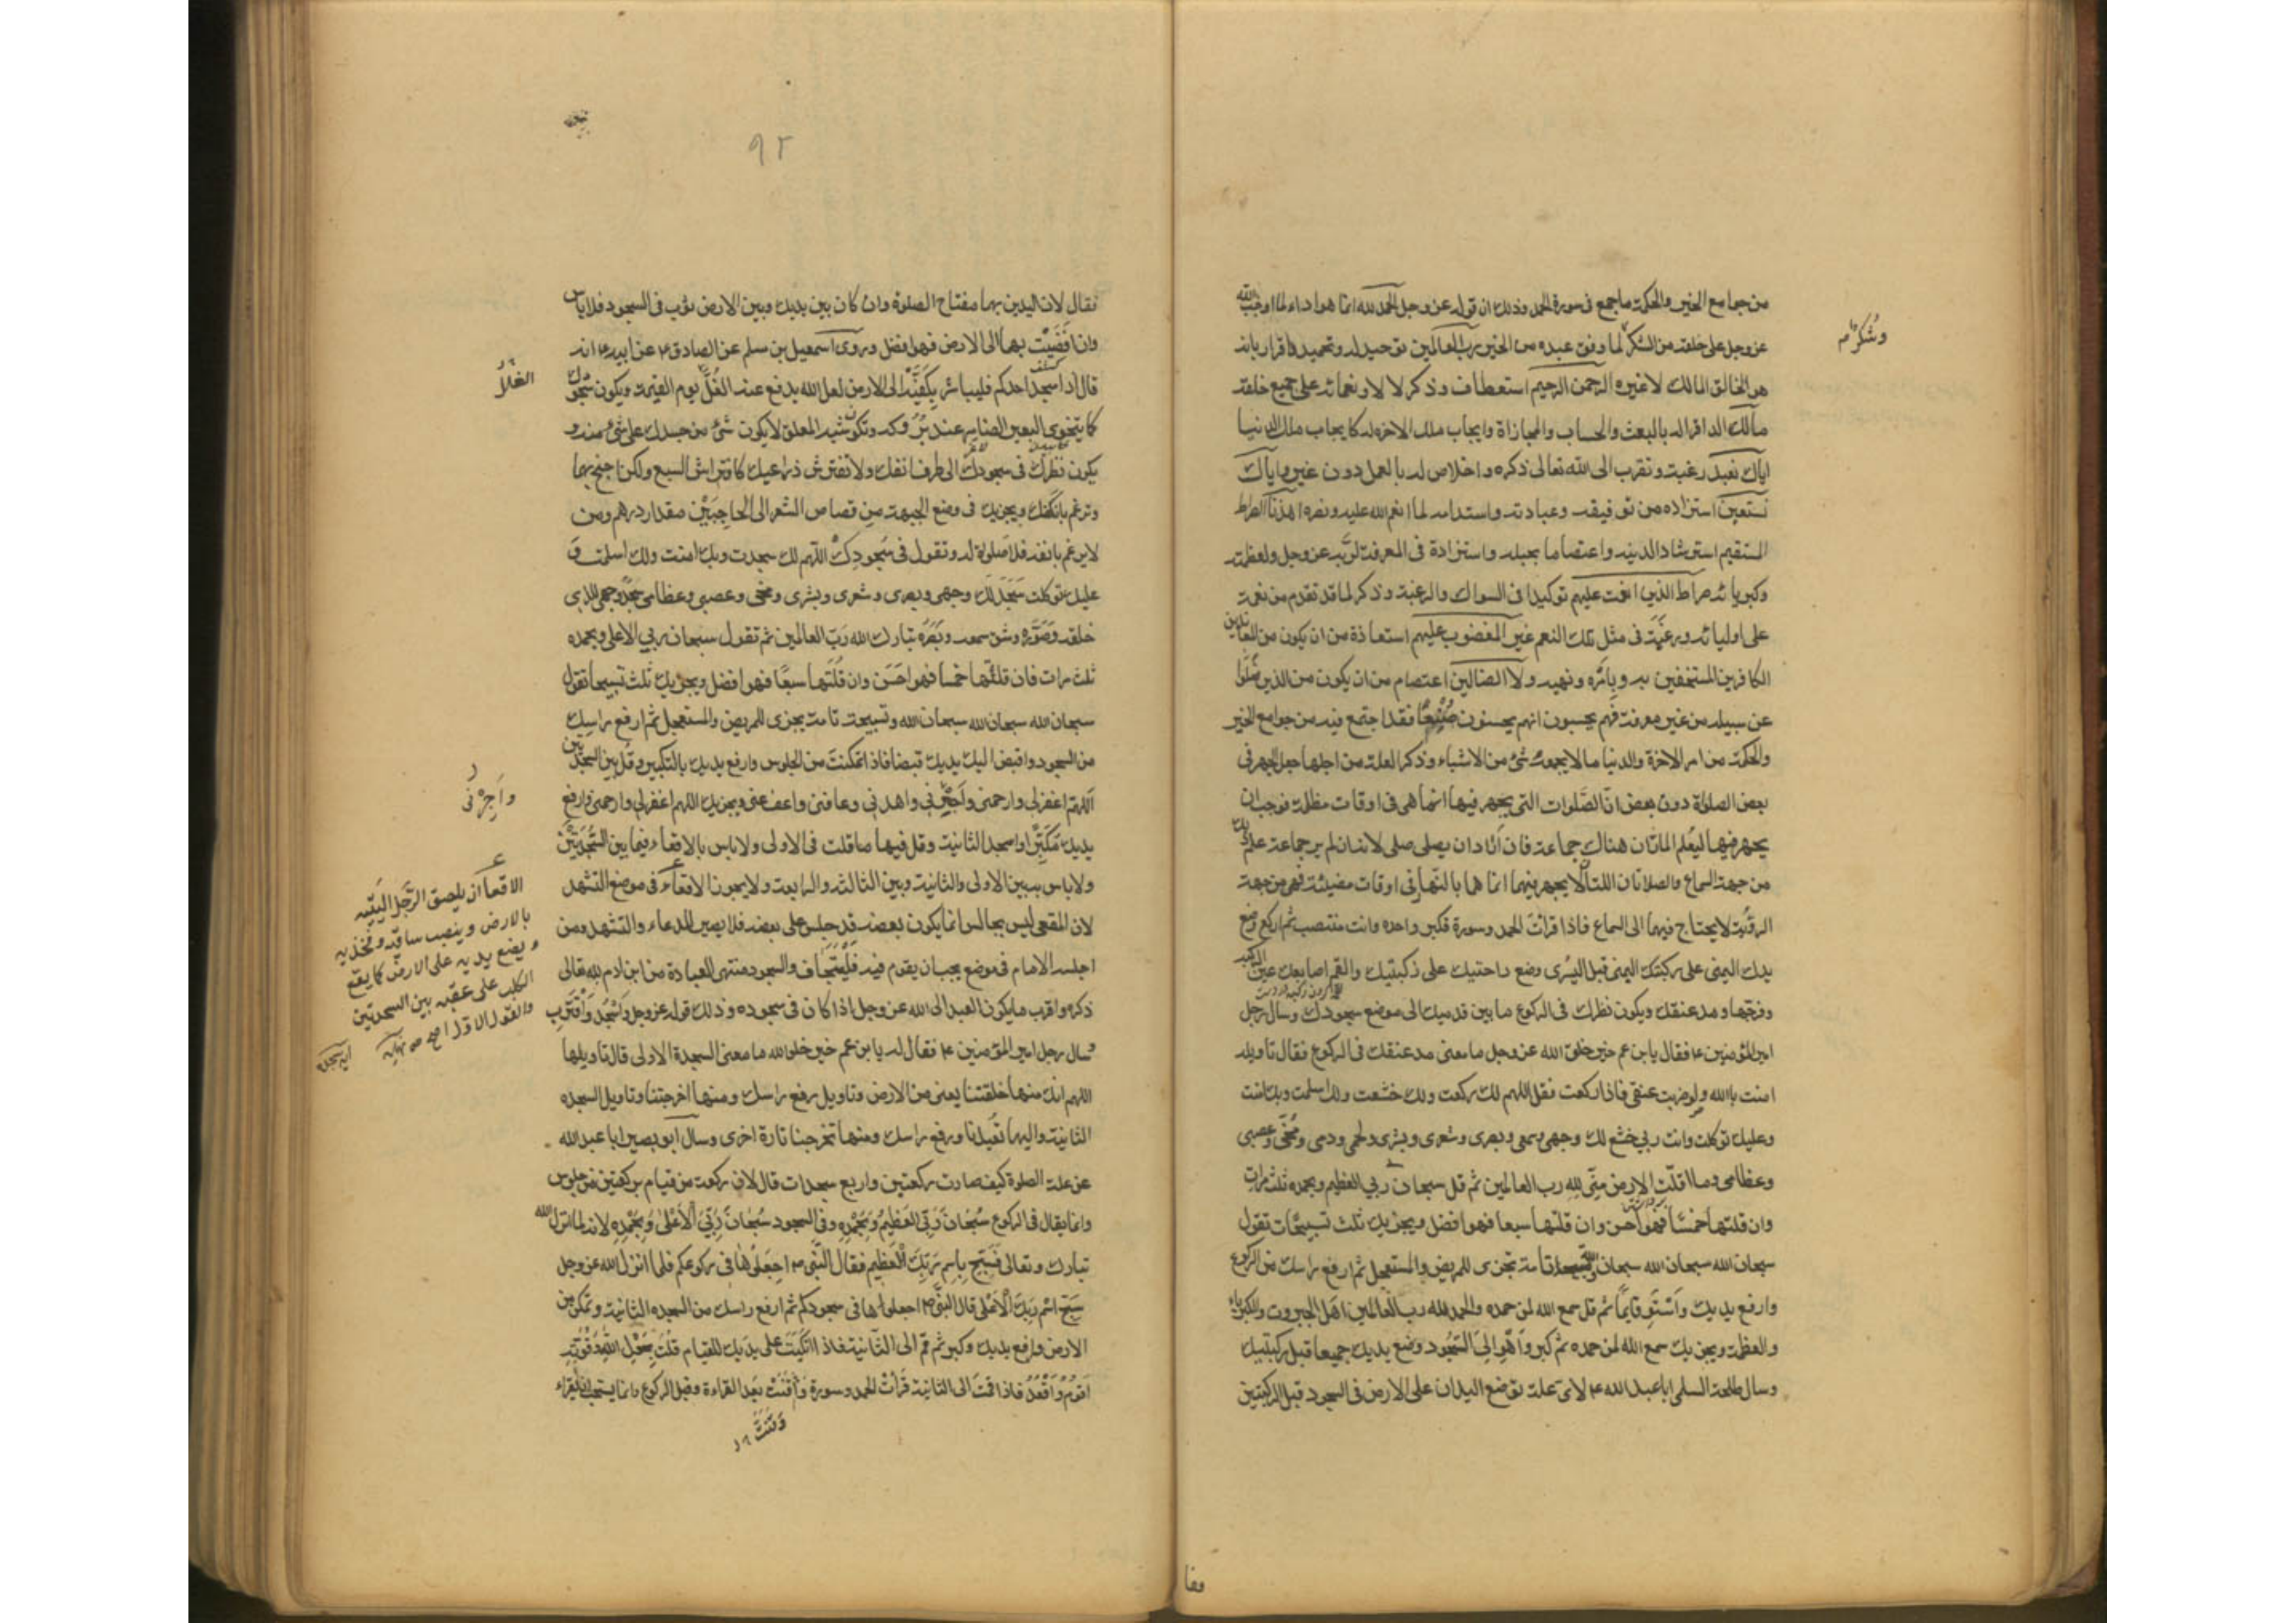 من جوامع الخير والحكمة ما جمع في سورة الحمد وذلك ان قوله عز وجل الحمد لله انما هو اداء لما اوجب الله
عز وجل على خلقه من الشكر لما وفق عبده من الخير رب العالمين توحيد له وتحميد واقرار بانه
هو الخالق المالك لا غيره الرحمن الرحيم استعطاف وذكر لالاء ونعمائه على جميع خلقه
مالك الدين اقرار له بالبعث والحساب والمجازاة وايجاب ملك الاخرة له كايجاب ملك الدنيا
اياك نعبد رغبة وتقرب الى الله تعالى ذكره واخلاص له بالعمل دون غيره واياك
نستعين استزاده من توفيقه وعبادته واستدامه لما انعم الله عليه ونصره اهدنا الصراط
المستقيم استرشاد لدينه واعتصاما بحبله واستزادة في المعرفة لربه عز وجل ولعظمته
وكبريائه صراط الذين انعمت عليهم توكيدا في السوال والرغبة وذكر لما قد تقدم من نعمه
على اوليائه ورغبة في مثل تلك النعم غير المغضوب عليهم استعاذة من ان يكون من المعاندين
الكافرين المستخفين به وبامره ونهيه ولا الضالين اعتصام من ان يكون من الذين ضلوا
عن سبيله من غير معرفة فهم يحسبون انهم يحسنون صنعا فقد اجتمع فيه من جوامع الخير
والحكمة من امر الاخرة والدنيا ما لا يجمعه شئ من الاشياء وذكر العلة من اجلها جعل الجهر في
بعض الصلوة دون بعض ان الصلوات التي يجهر فيها انما هي في اوقات مظلمة فوجب ان
يجهر فيها ليعلم المار ان هناك جماعة فان اراد ان يصلى صلى لانه ان لم ير جماعة علم ذلك
من جهة السماع والصلاتان اللتان لا يجهر فيهما انما هما بالنهار في اوقات مضيئة فهي من جهة
الرؤية لا يحتاج فيهما الى السماع فاذا قرات الحمد وسورة فكبر واحده وانت منتصب ثم اركع وضع
يدك اليمنى على ركبتك اليمنى قبل اليسرى وضع راحتيك على ركبتيك والقم اصابعك عين الركبه
وفرجها ومد عنقك ويكون نظرك في الركوع ما بين قدميك الى موضع سجودك وسال رجل
امير المؤمنين ع فقال يا بن عم خير خلق الله عز وجل ما معنى مد عنقك في الركوع فقال تاويله
امنت بالله ولو ضربت عنقى فاذا ركعت فقل اللهم لك ركعت ولك خشعت ولك اسلمت وبك امنت
وعليك توكلت وانت ربي خشع لك وجهي وسمعي وبصرى وشعرى وبشرى ولحمي ودمى ومخي وعصبي
وعظامى وما اقلت الارض مني لله رب العالمين ثم قل سبحان ربي العظيم وبحمده ثلث مرات
وان قلتها خمسا فهو احسن وان قلتها سبعا فهو افضل ويجزيك ثلث تسبيحات تقول
سبحان الله سبحان الله سبحان الله وتسبيحة تامة تجزى للمريض والمستعجل ثم ارفع راسك من الركوع
وارفع يديك واستو قايما ثم قل سمع الله لمن حمده والحمد لله رب العالمين اهل الجبروت والكبرياء
والعظمة ويجزيك سمع الله لمن حمده ثم كبر واهو الى السجود وضع يديك جميعا قبل ركبتيك
وسال طلحة السلمي ابا عبد الله ع لاى علة توضع اليدان على الارض في السجود قبل الركبتين
وشكرا م
فقا
٩٢
فقال لان اليدين بهما مفتاح الصلوة وان كان بين يديك وبين الارض ثوب في السجود فلا باس
وان افضيت بهما الى الارض فهو افضل وروى اسمعيل بن مسلم عن الصادق ع عن ابيه ع انه
قال اذا سجد احدكم فليباشر بكفيه الى الارض لعل الله يدفع عنه الغل يوم القيمة ويكون سجودك
كما يتخوى البعير الضامر عند بروكه وتكون شبه المعلق لا يكون شئ من جسدك على شئ منه و
يكون نظرك في سجودك الى طرف انفك ولا تفترش ذراعيك كافتراش السبع ولكن اجنح بهما
وترغم بانفك ويجزيك في وضع الجبهة من قصاص الشعر الى الحاجبين مقدار درهم ومن
لا يرغم بانفه فلا صلوة له وتقول في سجودك اللهم لك سجدت وبك امنت ولك اسلمت و
عليك توكلت سجد لك وجهى وبصرى وشعرى وبشرى ومخي وعصبي وعظامى سجد وجهى للذى
خلقه وصوره وشق سمعه وبصره تبارك الله رب العالمين ثم تقول سبحان ربي الاعلى وبحمده
ثلث مرات فان قلتها خمسا فهو احسن وان قلتها سبعا فهو افضل ويجزيك ثلث تسبيحات تقول
سبحان الله سبحان الله سبحان الله وتسبيحة تامة يجزى للمريض والمستعجل ثم ارفع راسك
من السجود واقبض اليك يديك قبضا فاذا تمكنت من الجلوس وارفع يديك بالتكبير وقل بين السجدتين
اللهم اغفر لى وارحمنى واجرني واهدني وعافنى واعف عنى ويجزيك اللهم اغفر لى وارحمنى وارفع
يديك مكبرا واسجد الثانية وقل فيها ما قلت في الاولى ولا باس بالاقعاء فيما بين السجدتين
ولا باس به بين الاولى والثانية وبين الثالثه والرابعة ولا يجوز الاقعاء في موضع التشهد
لان المقعى ليس بجالس انما يكون بعضه قد جلس على بعضه فلا يصير للدعاء والتشهد ومن
اجلسه الامام في موضع يجب ان يقوم فيه فليتجاف والسجود منتهى العبادة من ابن ادم لله تعالى
ذكره واقرب ما يكون العبد الى الله عز وجل اذا كان في سجوده وذلك قوله عز وجل واسجد واقترب
وسال رجل امير المؤمنين ع فقال له يا بن عم خير خلق الله ما معنى السجدة الاولى قال تاويلها
اللهم انك منها خلقتنا يعنى من الارض وتاويل رفع راسك ومنها اخرجتنا وتاويل السجده
الثانية واليها تعيدنا ورفع راسك ومنها تخرجنا تارة اخرى وسال ابو بصير ابا عبد الله
عن علة الصلوة كيف صارت ركعتين واربع سجدات قال لان ركعة من قيام بركعتين من جلوس
وانما يقال في الركوع سبحان ربي العظيم وبحمده وفي السجود سبحان ربي الاعلى وبحمده لانه لما انزل الله
تبارك وتعالى فسبح باسم ربك العظيم فقال النبي ص اجعلوها في ركوعكم فلما انزل الله عز وجل
سبح اسم ربك الاعلى قال النبي ص اجعلوها في سجودكم ثم ارفع راسك من السجده الثانية وتمكن من
الارض وارفع يديك وكبر ثم قم الى الثانية فاذا اتكيت على يديك للقيام قلت بحول الله وقوته
اقوم واقعد فاذا قمت الى الثانية قرات الحمد وسورة واقنت بعد القراءة وقبل الركوع وانما يستحب ان يقراء
وقنت
الغلل
واجرني
الاقعا ان يلصق الرجل اليتيه
بالارض وينصب ساقيه وفخذيه
ويضع يديه على الارض كما يقع
الكلب على عقبه بين السجدتين
والقول الاول اصح نهايه